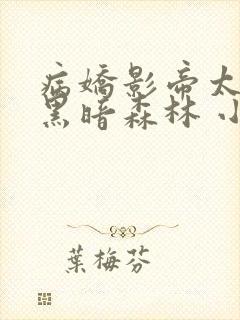 病嬌影帝太
黑暗森林 小
葉梅芬